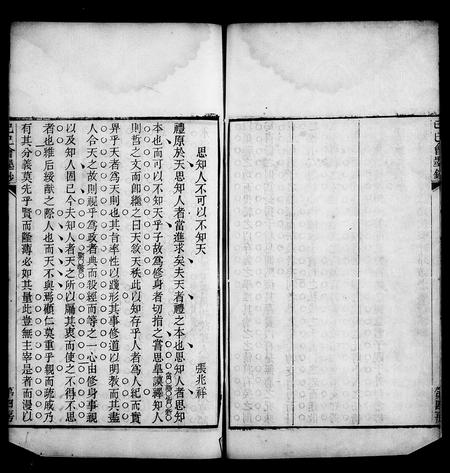 思知人不可以不知天
張兆祥
禮原於天思知人者當進求矣夫天者禮之本也思知人者思知
本也而可以不知天乎子故爲修身者切指之嘗思皐謨釋知人
則哲之文而卽繼之曰天敘天秩此以知存乎人者爲人紀而實
界乎天者爲天則也其旨率性以踐形其事修道以明教而其盡
人合天之故則視乎爲政者典而殺經而等之一心由修身事親
以及知人固已今夫知人者天之所以屬其衷而使之不得不思
者也維后綏猷之際人也而天不與焉顧仁莫重乎親而疏戚乃
有其分義莫先乎賢而隆薄必如其量此豈無主宰是者而漫以
己巳會墨鈔